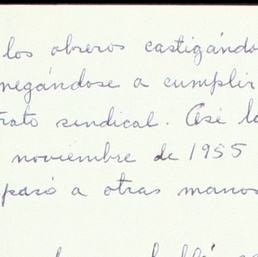 los obreros castigándo
negándose a cumplir
rato sindical. Así la
noviembre de 1955
pasó a otras manos
habló